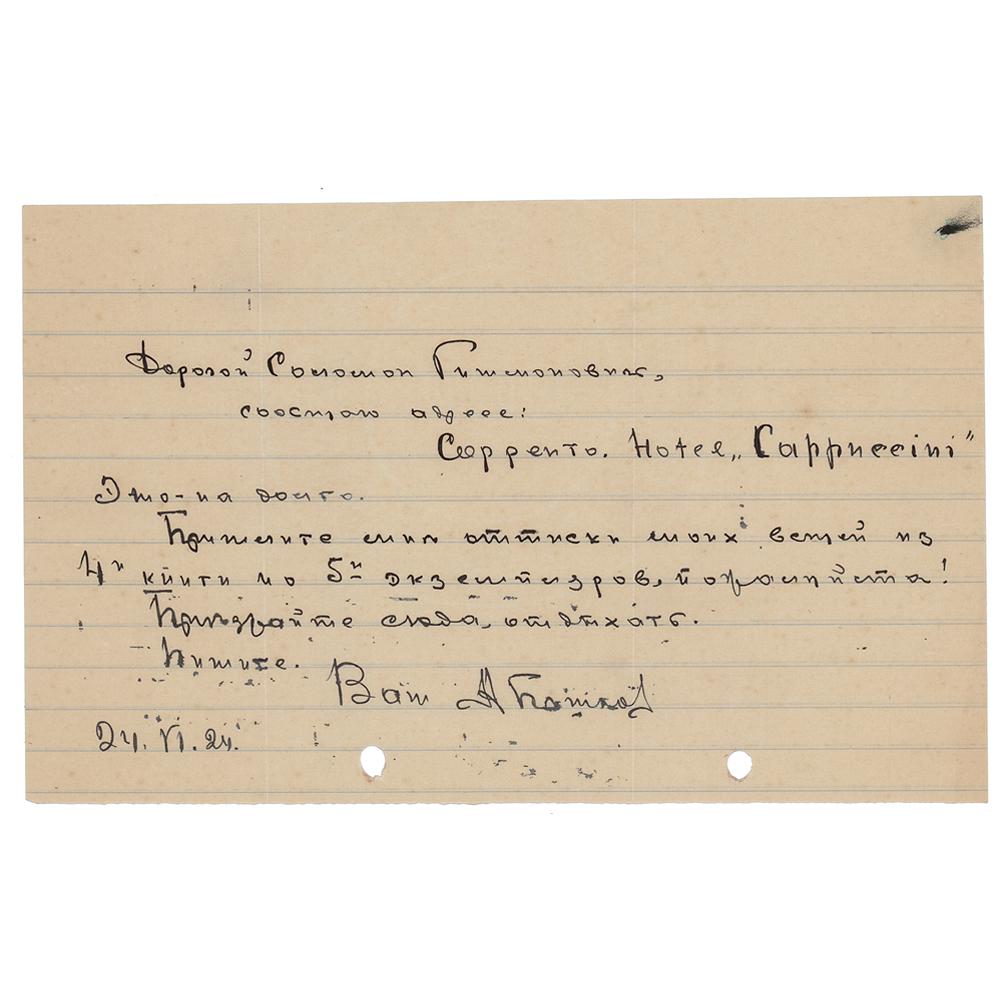 Дорогой Соломон Гитмонович,
сообщаю адрес:
Сорренто. Hotel „Cappuccini”
Это - на долго.
Пришлите мне оттиски моих вещей из
4й книги по 5и экземпляров, пожалуйста!
Приезжайте сюда, отдыхать.
Пишите.
Ваш А Пешков
24.VI.24.